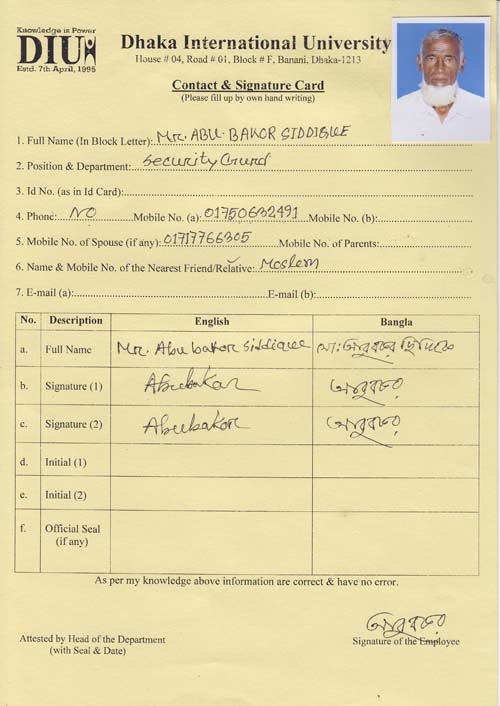 Knowledge is Power
DIU
Estd. 7th April, 1995
Dhaka International University
House # 04, Road # 01, Block # F, Banani, Dhaka-1213
Contact & Signature Card
(Please fill up by own hand writing)
1. Full Name (In Block Letter): Mr. ABU BAKOR SIDDIQUE
2. Position & Department: Security Gurd
3. Id No. (as in Id Card):
4. Phone: NO Mobile No. (a): 01750632491 Mobile No. (b):
5. Mobile No. of Spouse (if any): 01717766305 Mobile No. of Parents:
6. Name & Mobile No. of the Nearest Friend/Relative: Moslem
7. E-mail (a): E-mail (b):
No. Description English Bangla
a. Full Name Mr. Abu bakor Siddiquee মো: আবুবকর
b. Signature (1) Abubakar আবুবকর
c. Signature (2) Abubakor আবুবকর
d. Initial (1)
e. Initial (2)
f. Official Seal
(if any)
As per my knowledge above information are correct & have no error.
আবুবকর
Attested by Head of the Department Signature of the Employee
(with Seal & Date)